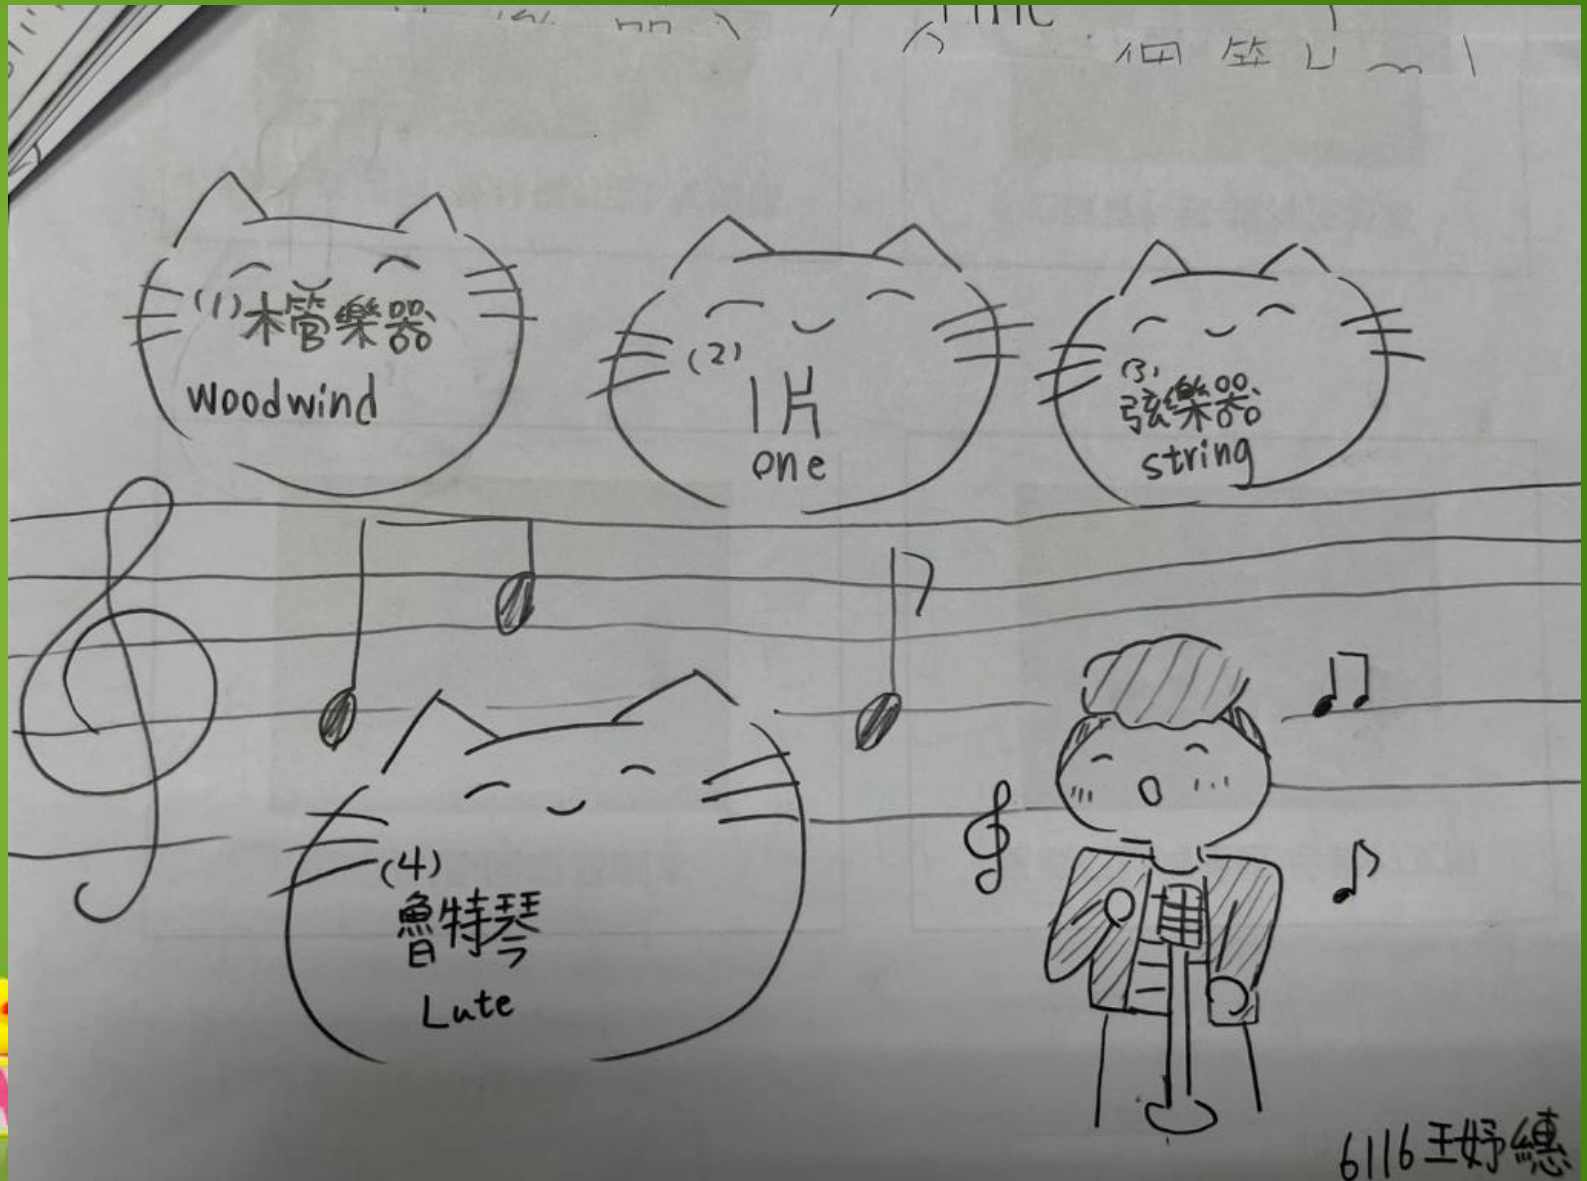 (1) 木管樂器
woodwind
(2)
1片
one
(3)
弦樂器
string
(4)
魯特琴
Lute
6116 王妤繐